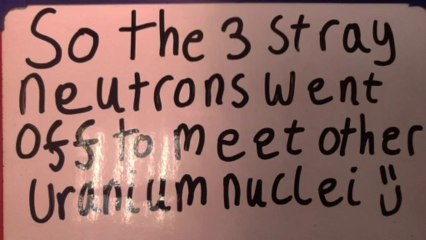 So the 3 stray
neutrons went
off to meet other
uranium nuclei ü